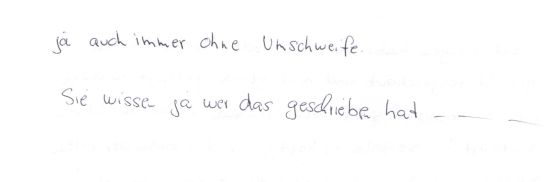 ja auch immer ohne Umschweife.
Sie wisse ja wer das geschriebe hat - - -